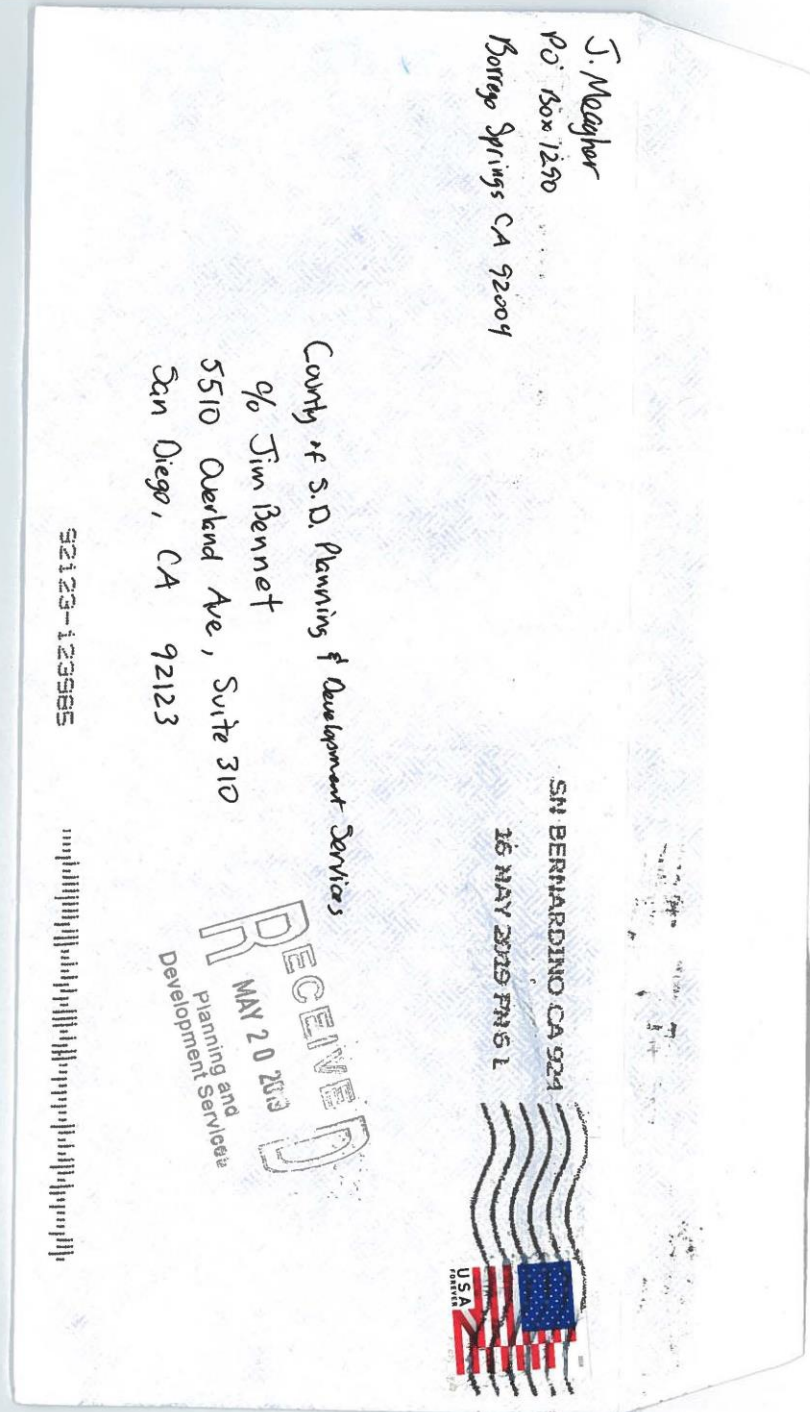 J. Meagher
PO Box 1290
Borrego Springs CA 92004
SN BERNARDINO CA 924
16 MAY 2019 PM 5 L
USA
FOREVER
County of S.D. Planning & Development Services
% Jim Bennet
5510 Overland Ave, Suite 310
San Diego, CA 92123
RECEIVED
MAY 20 2019
Planning and
Development Services
92123-123985